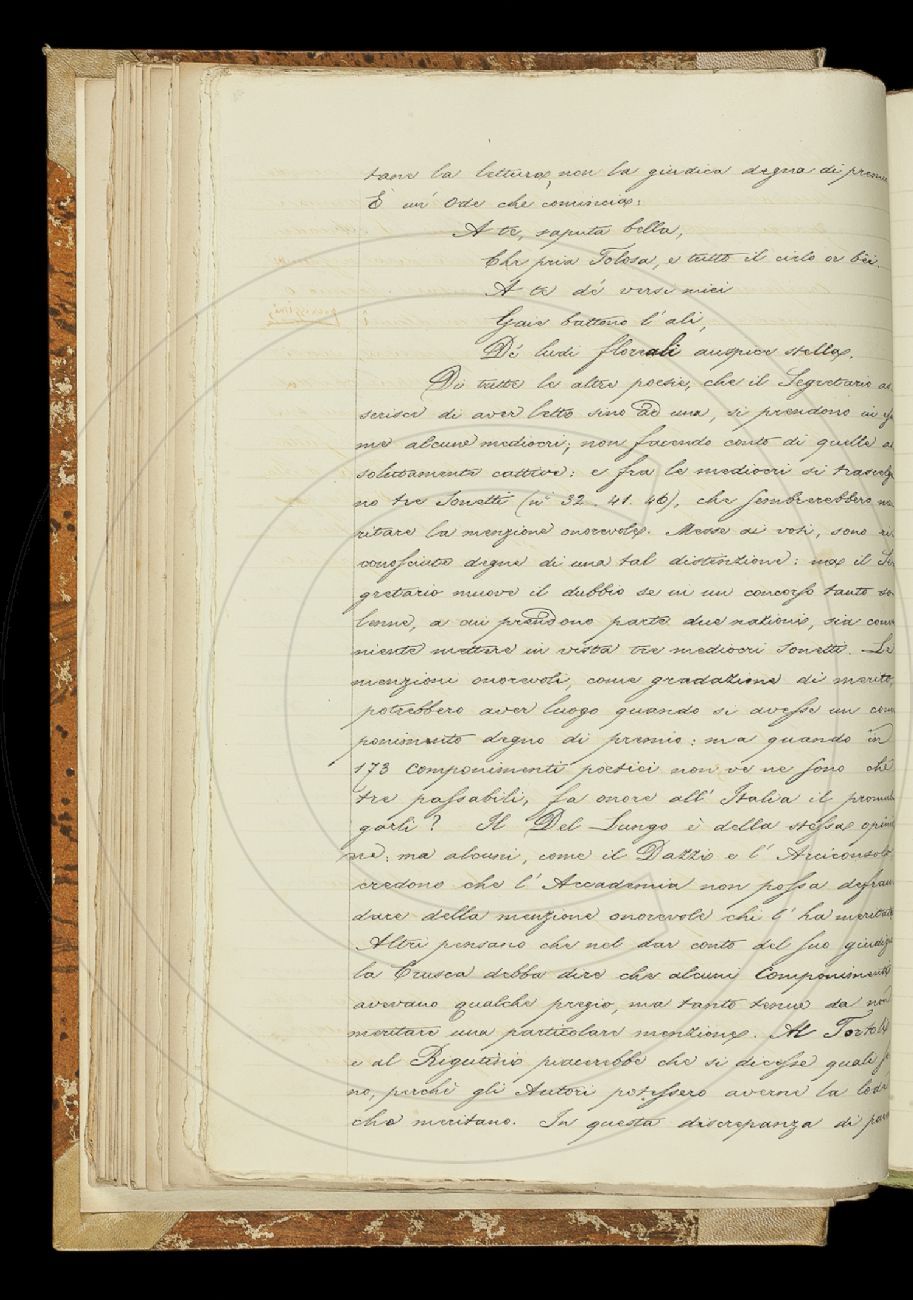 tane la lettura, non la giudica degna di premio
È un' Ode che comincia:
A te, saputa bella,
Che pria Tolosa, e tutto il cielo or bëi.
A te dé versi miei
Gaie battono l' ali,
Dé ludi floreali auspice stella.
Di tutte le altre poesie, che il Segretario as
serisce di aver letto sino ad una, si prendono in esa
me alcune mediocri; non facendo conto di quelle as
solutamente cattive: e fra le mediocri si trascelgo
no tre Sonetti (n.° 32. 41. 46), che sembrerebbero me
ritare la menzione onorevole. Messe ai voti, sono ri
conosciute degne di una tal distinzione: ma il Se
gretario muove il dubbio se in un concorso tanto so
lenne, a cui prendono parte due nazioni, sia conve
niente mettere in vista tre mediocri Sonetti. Le
menzioni onorevoli, come gradazione di merito,
potrebbero aver luogo quando si avesse un com
ponimento degno di premio: ma quando in
173 componimenti poetici non ve ne sono che
tre passabili, fa onore all' Italia il promul
garli? Il Del Lungo è della stessa opinio
ne; ma alcuni, come il Dazzi e l' Arciconsolo
credono che l' Accademia non possa defrau
dare della menzione onorevole chi l' ha meritata
Altri pensano che nel dar conto del suo giudizio
la Crusca debba dire che alcuni componimenti
avevano qualche pregio, ma tanto tenue da non
meritare una particolare menzione. Al Tortoli
e al Rigutinio piacerebbe che si dicesse quali so
no, perchè gli Autori potessero averne la lode
che meritano. In questa discrepanza di pare